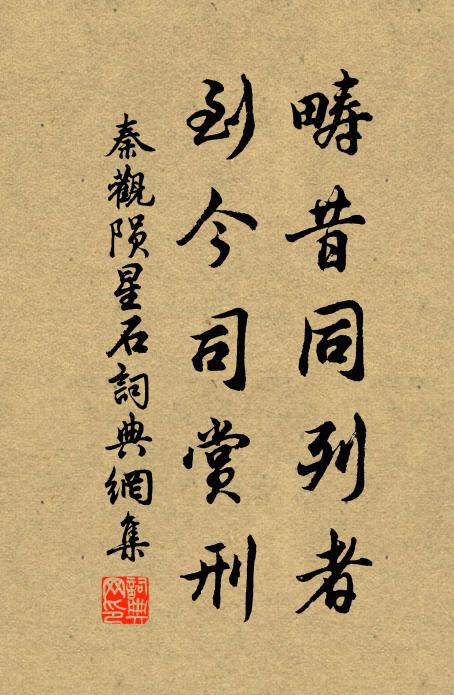 疇昔同列者
到今司賞刑
秦觀隕星石詞典網集
詞典網印